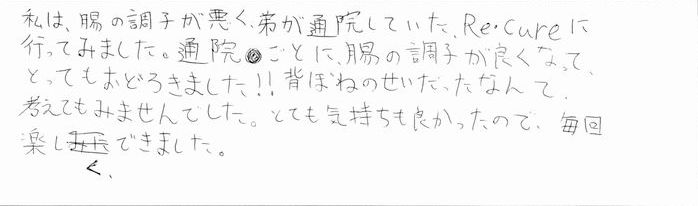 私は、腸の調子が悪く、弟が通院していた、Re・Cureに
行ってみました。通院ごとに、腸の調子が良くなって、
とってもおどろきました!!背ぼねのせいだったなんて、
考えてもみませんでした。とても気持ちも良かったので、毎回
楽しくできました。